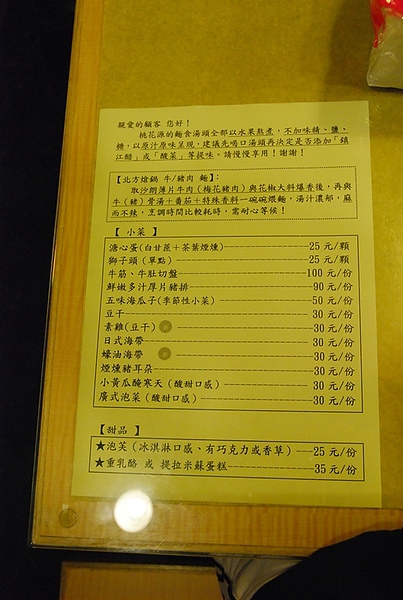 親愛的顧客 您好！
桃花源的麵食湯頭全部以水果熬煮，不加味精、鹽、
糖，以原汁原味呈現，建議先喝口湯頭再決定是否添加「鎮
江醋」或「酸菜」等提味。請慢慢享用！謝謝！
【北方熗鍋 牛/豬肉 麵】：
取沙朗薄片牛肉（梅花豬肉）與花椒大料爆香後，再與
牛（豬）骨湯＋番茄＋特殊香料一碗碗煨麵，湯汁濃郁，麻
而不辣，烹調時間比較耗時，需耐心等候！
【 小菜 】
溏心蛋(白甘蔗＋茶葉煙燻)---25 元/顆
獅子頭（單點）---25 元/顆
牛筋、牛肚切盤---100 元/份
鮮嫩多汁厚片豬排---90 元/份
五味海瓜子(季節性小菜)---50 元/份
豆干---30 元/份
素雞(豆干)---30 元/份
日式海帶---30 元/份
蠔油海帶---30 元/份
煙燻豬耳朵---30 元/份
小黃瓜醃寒天（酸甜口感）---30 元/份
廣式泡菜（酸甜口感）---30 元/份
【甜品】
★泡芙（冰淇淋口感、有巧克力或香草）---25 元/份
★重乳酪 或 提拉米蘇蛋糕---35 元/份